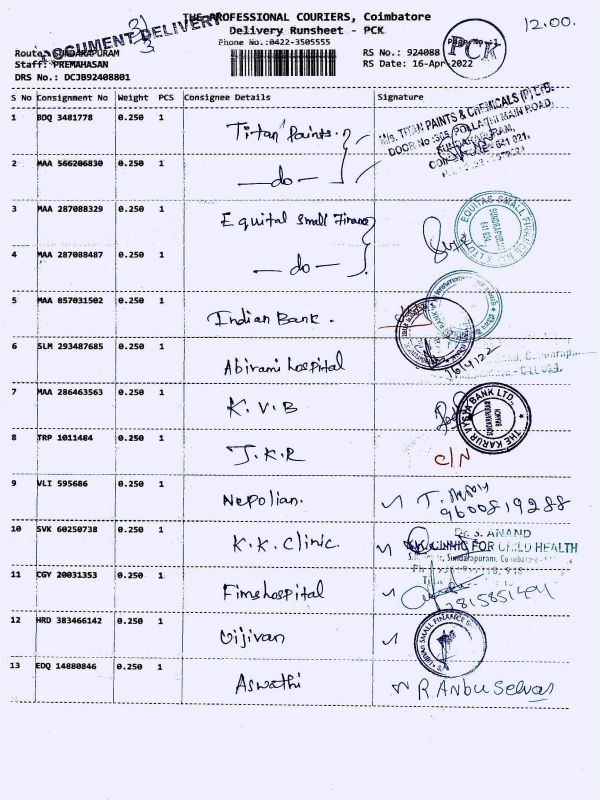 THE PROFESSIONAL COURIERS, Coimbatore
DOCUMENT DELIVERY
12.00.
Delivery Runsheet - PCK
Phone No.:0422-3505555
PCK
Route: SUNDARAPURAM
RS No.: 924088
Staff: PREMAHASAN
RS Date: 16-Apr-2022
DRS No.: DCJB92408801
S No Consignment No Weight PCS Consignee Details Signature
1 BDQ 3481778 0.250 1 Titan Paints.
M/s. TITAN PAINTS & CHEMICALS (P) LTD.
DOOR No :365, POLLATHI MAIN ROAD,
SUNDARAPURAM,
2 MAA 566206830 0.250 1 —do—
3 MAA 287088329 0.250 1 Equital Small Finance
EQUITAS SMALL FINANCE BANK LTD
SUNDRAPURAM
641 024
4 MAA 287088487 0.250 1 —do—
5 MAA 857031502 0.250 1 Indian Bank.
6 SLM 293487685 0.250 1 Abirami hospital
16/4/22
7 MAA 286463563 0.250 1 K.V.B
THE KARUR VYSYA BANK LTD.,
SUNDARAPURAM
BRANCH
8 TRP 1011484 0.250 1 J.K.R C/N
9 VLI 595686 0.250 1 Nepolian.
9600819288
10 SVK 60250738 0.250 1 K.K. Clinic
Dr. S. ANAND
K.K. CLINIC FOR CHILD HEALTH
Sundarapuram,
11 CGY 20031353 0.250 1 Fims hospital
12 HRD 383466142 0.250 1 Ujjivan
UJJIVAN SMALL FINANCE
13 EDQ 14880846 0.250 1 Aswathi R. Anbu Selvas